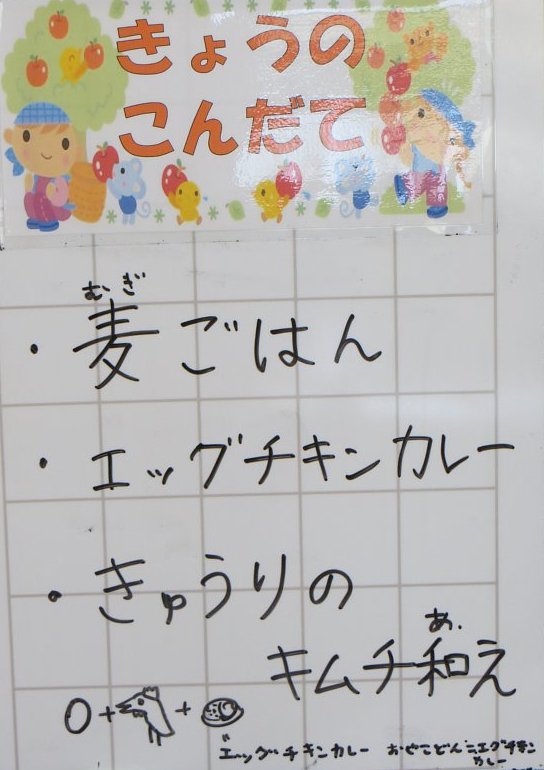 きょうの
こんだて
むぎ
・麦ごはん
・エッグチキンカレー
・きゅうりの
あ
キムチ和え
エッグチキンカレー
カレー